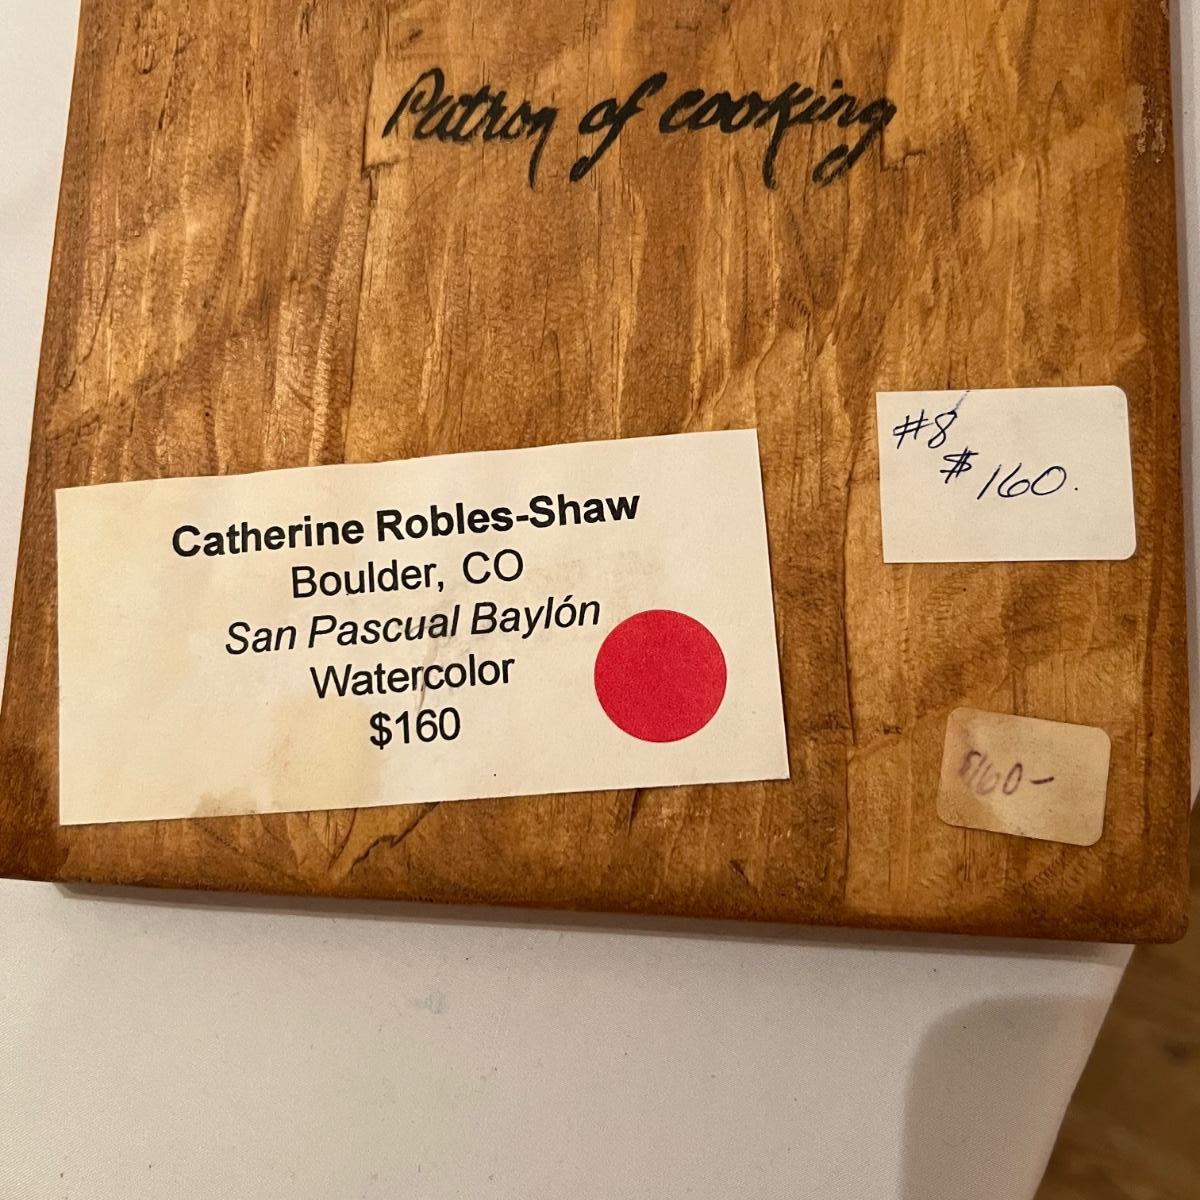 Patron of cooking
#8
$160.
Catherine Robles-Shaw
Boulder, CO
San Pascual Baylón
Watercolor
$160
$160-